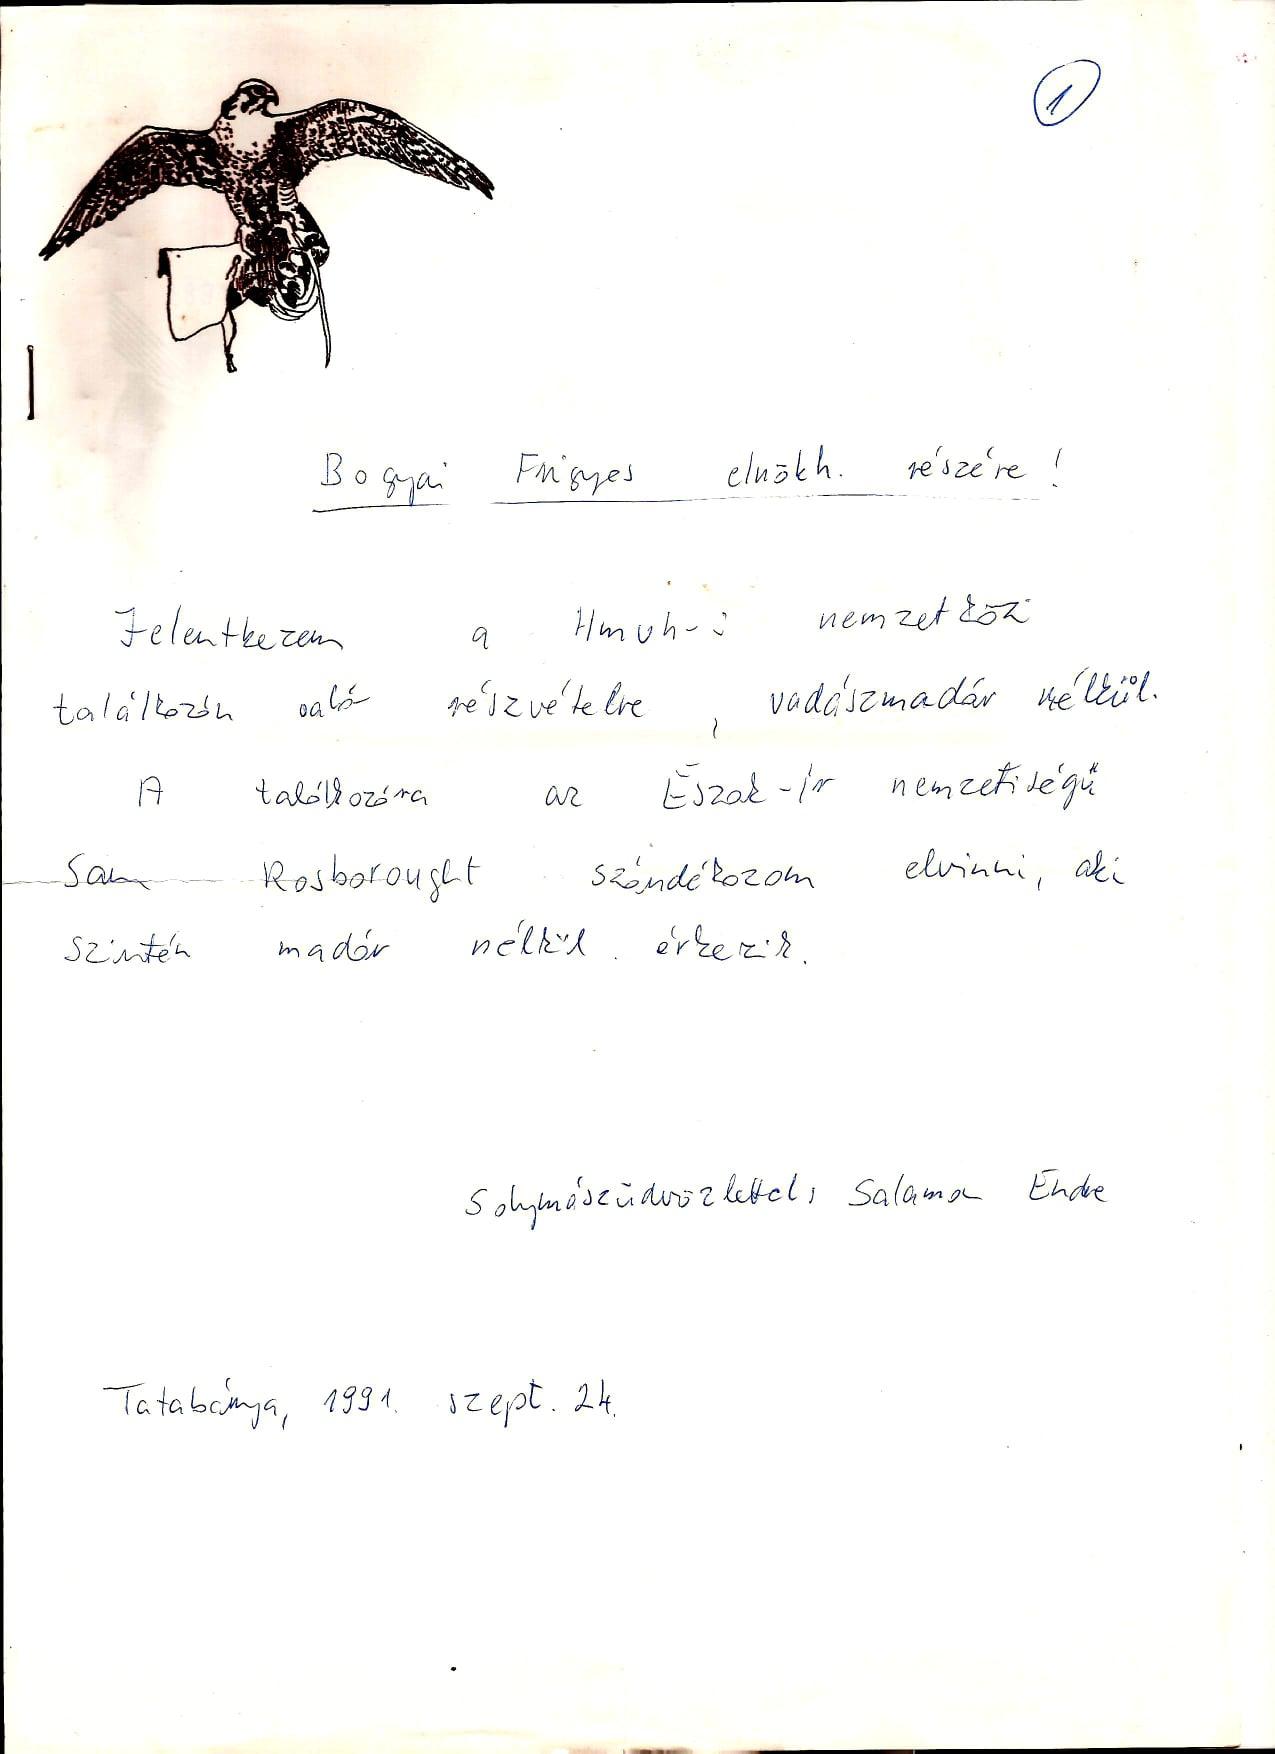 1
Bogyai Frigyes elnökh. részére!
Jelentkezem a Hmvh-i nemzetközi
találkozón való részvételre, vadászmadár nélkül.
A találkozóra az Észak-ír nemzetiségű
Sam Rosborought szándékozom elvinni, aki
szintén madár nélkül érkezik.
Solymászüdvözlettel: Salamon Endre
Tatabánya, 1991. szept. 24.